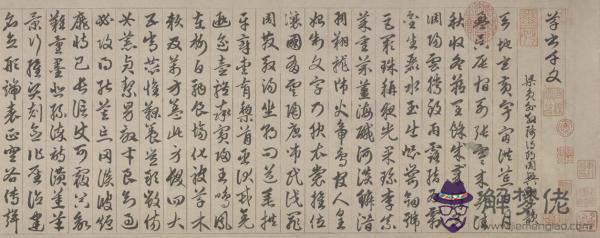 草書千文
梁員外散騎侍郎周興嗣次韻
天地玄黃宇宙洪荒日月
盈昃辰宿列張寒來暑往
秋收冬藏閏餘成歲律呂
調陽雲騰致雨露結為霜
金生麗水玉出崑岡劍號
巨闕珠稱夜光果珍李柰
菜重芥薑海鹹河淡鱗潛
羽翔龍師火帝鳥官人皇
始制文字乃服衣裳推位
讓國有虞陶唐弔民伐罪
周發殷湯坐朝問道垂拱
平章愛育黎首臣伏戎羌
遐邇壹體率賓歸王鳴鳳
在樹白駒食場化被草木
賴及萬方蓋此身髮四大
五常恭惟鞠養豈敢毀傷
女慕貞絜男效才良知過
必改得能莫忘罔談彼短
靡恃己長信使可覆器欲
難量墨悲絲染詩讚羔羊
景行維賢剋念作聖德建
名立形端表正空谷傳聲
解夢佬
jiemenglao.com